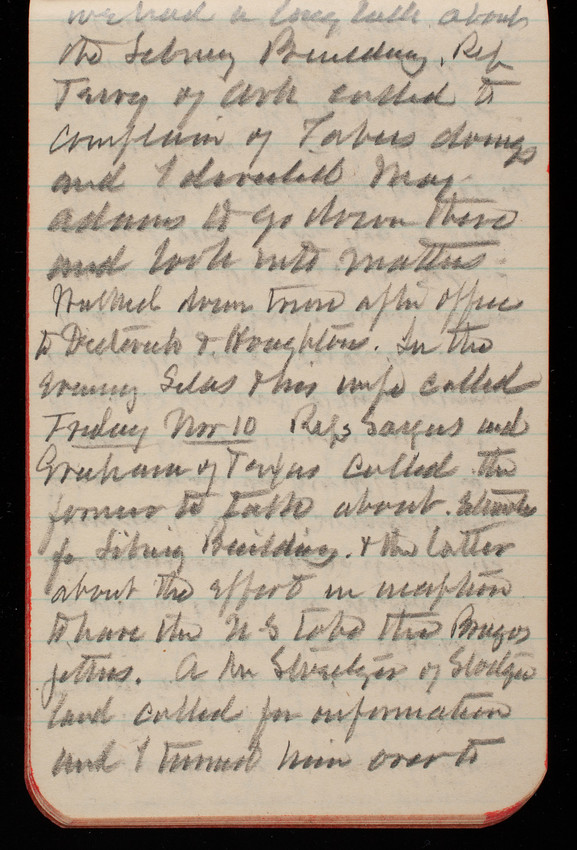 we had a long talk about
the Library Building. Rep
Terry of Ark called to
complain of Tabers doings
and I directed Maj
Adams to go down there
and look into matters.
Walked down town after office
to Dieterich & Houghtons. In the
evening Silas & his wife called
Friday Nov 10 Reps Sayers and
Graham of Texas called the
former to talk about Estimates
for Library Building. & the latter
about the effort in inception
to have the US take the Brazos
jetties. A Mr of
land called for information
and I turned him over to